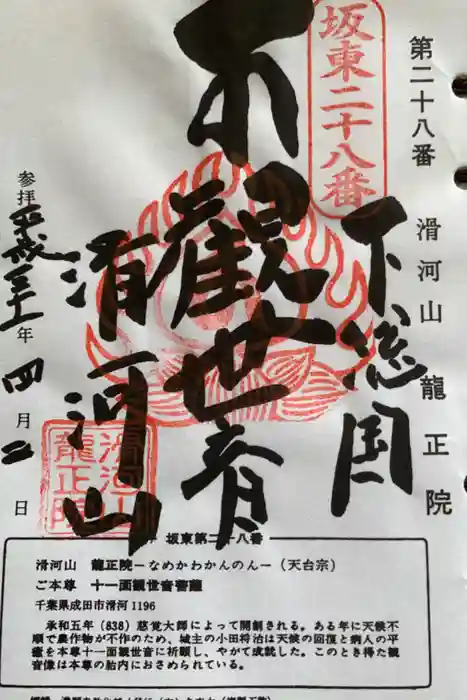 第二十八番 滑河山 龍正院
坂東二十八番
下総国
観世音
滑河山
参拝 平成三十一年 四月二日
滑河山
龍正院
坂東第二十八番
滑河山 龍正院−なめかわかんのん−（天台宗）
ご本尊 十一面観世音菩薩
千葉県成田市滑河 1196
承和五年（838）慈覚大師によって開創される。ある年に天候不
順で農作物が不作のため、城主の小田将治は天候の回復と病人の平
癒を本尊十一面観世音に祈願し、やがて成就した。このとき得た観
音像は本尊の胎内におさめられている。